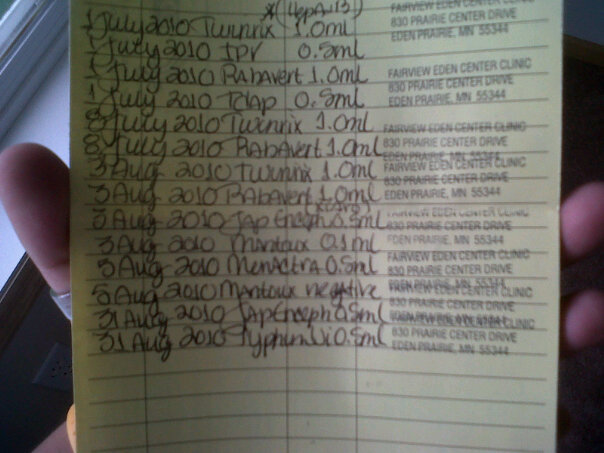 *(HepA+B)
1 July 2010 Twinrix 1.0ml FAIRVIEW EDEN CENTER CLINIC
830 PRAIRIE CENTER DRIVE
EDEN PRAIRIE, MN 55344
1 July 2010 IPV 0.5ml
1 July 2010 RabAvert 1.0ml FAIRVIEW EDEN CENTER CLINIC
830 PRAIRIE CENTER DRIVE
1 July 2010 Tdap 0.5ml EDEN PRAIRIE, MN 55344
8 July 2010 Twinrix 1.0ml FAIRVIEW EDEN CENTER CLINIC
8 July 2010 RabAvert 1.0ml 830 PRAIRIE CENTER DRIVE
EDEN PRAIRIE, MN 55344
3 Aug 2010 Twinrix 1.0ml FAIRVIEW EDEN CENTER CLINIC
830 PRAIRIE CENTER DRIVE
3 Aug 2010 RabAvert 1.0ml EDEN PRAIRIE, MN 55344
3 Aug 2010 Jap Enceph 0.5ml FAIRVIEW EDEN CENTER CLINIC
830 PRAIRIE CENTER DRIVE
3 Aug 2010 Mantoux 0.1ml EDEN PRAIRIE, MN 55344
3 Aug 2010 Menactra 0.5ml FAIRVIEW EDEN CENTER CLINIC
830 PRAIRIE CENTER DRIVE
5 Aug 2010 Mantoux negative
31 Aug 2010 Jap Enceph 0.5ml FAIRVIEW EDEN CENTER CLINIC
31 Aug 2010 Typhim Vi 0.5ml 830 PRAIRIE CENTER DRIVE
EDEN PRAIRIE, MN 55344